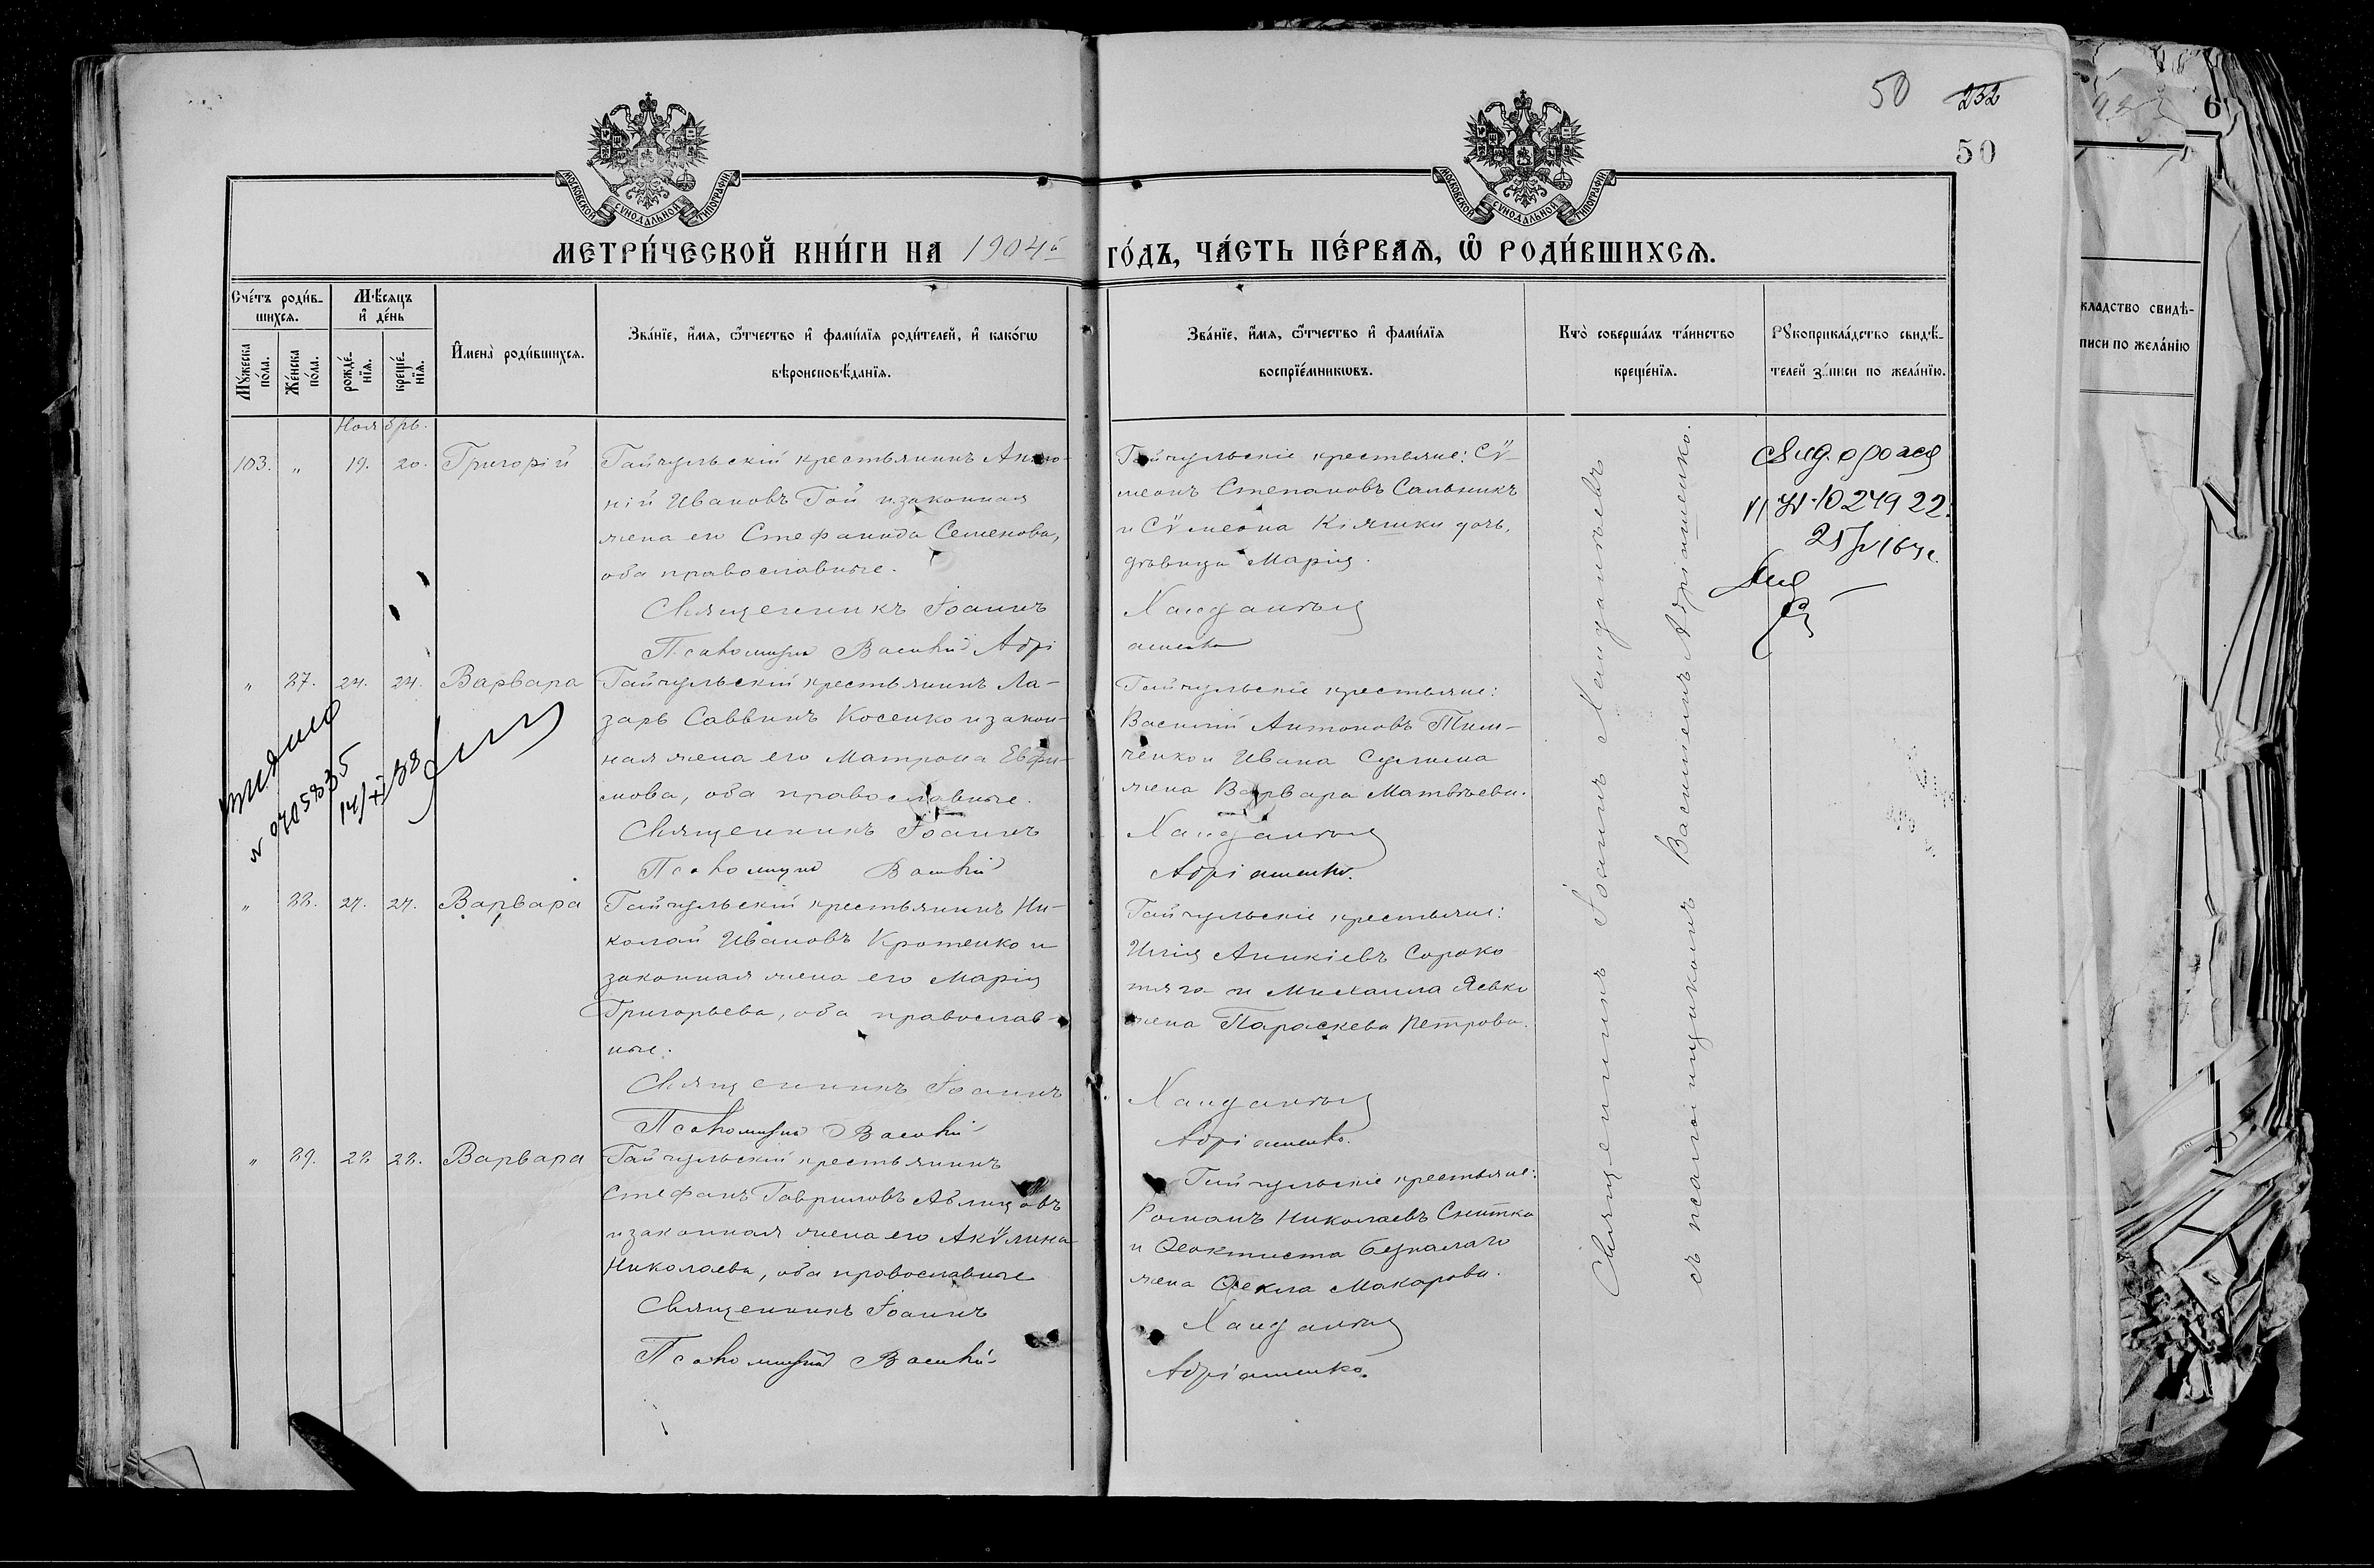 50 232
50
МОСКОВСКОЙ СѴНОДАЛЬНОЙ ТИПОГРАФІИ
МОСКОВСКОЙ СѴНОДАЛЬНОЙ ТИПОГРАФІИ
МЕТРИ́ЧЕСКОЙ КНИ́ГИ НА 1904й
ГО́ДЪ, ЧА́СТЬ ПЕ́РВАѦ, Ѡ҆ РОДИ́ВШИХСѦ.
Сче́тъ роди́в-
шихсѧ.
Мꙋ́жеска по́ла.
Же́нска по́ла.
Мѣ́сѧцъ
и҆ де́нь
рожде́-
нїѧ.
креще́-
нїѧ.
И҆мена̀ роди́вшихсѧ.
Зва́нїе, и҆́мѧ, ѻ҆́тчество и҆ фами́лїѧ роди́телей, и҆ како́гѡ
вѣроисповѣ́данїѧ.
Зва́нїе, и҆́мѧ, ѻ҆́тчество и҆ фами́лїѧ
воспрїе́мникѡвъ.
Кто̀ соверша́лъ та́инство
креще́нїѧ.
Рꙋкоприкла́дство свидѣ́-
телей за́писи по жела́нїю.
Ноябрь.
103. " 19. 20. Григорій
Гайчульскій крестьянинъ Анто-
ній Ивановъ Гой и законная
жена его Стефанида Семенова,
оба православные.
Священникъ Іоаннъ
Псаломщикъ Василій Адрі
Гайчульскіе крестьяне: Сѵ-
меонъ Степановъ Сальникъ
и Сѵмеона Кіяшки дочь,
дѣвица Марія.
Ханданѣевъ
ашенко
" 87. 24. 24. Варвара
Гайчульскій крестьянинъ Ла-
зарь Саввинъ Косенко и закон-
ная жена его Матрона Евфи-
мова, оба православные.
Священникъ Іоаннъ
Псаломщикъ Василій
Гайчульскіе крестьяне:
Василій Антоновъ Тим-
ченко и Ивана Сулима
жена Варвара Матвѣева.
Ханданѣевъ
Адріашенко.
" 88. 24. 24. Варвара
Гайчульскій крестьянинъ Ни-
колай Ивановъ Кротенко и
законная жена его Марія
Григорьева, оба православ-
ные.
Священникъ Іоаннъ
Псаломщикъ Василій
Гайчульскіе крестьяне:
Илія Аникіевъ Сороко
тяга и Михаила Яевко
жена Параскева Петрова.
Ханданѣевъ
Адріашенко.
" 89. 28 28. Варвара
Гайчульскій крестьянинъ
Стефанъ Гавриловъ
и законная жена его Акѵлина
Николаева, оба православные
Священникъ Іоаннъ
Псаломщикъ Василій
Гайчульскіе крестьяне:
Романъ Николаевъ Снитко
и Ѳеоктиста Безпалаго
жена Ѳекла Макарова.
Ханданѣевъ
Адріашенко.
Священникъ Іоаннъ Ханданѣевъ
съ псаломщикомъ Василіемъ Адріашенко.
Свид. о рожд
1024922.
N 0705835
6
кладство свидѣ-
писи по жела́нїю